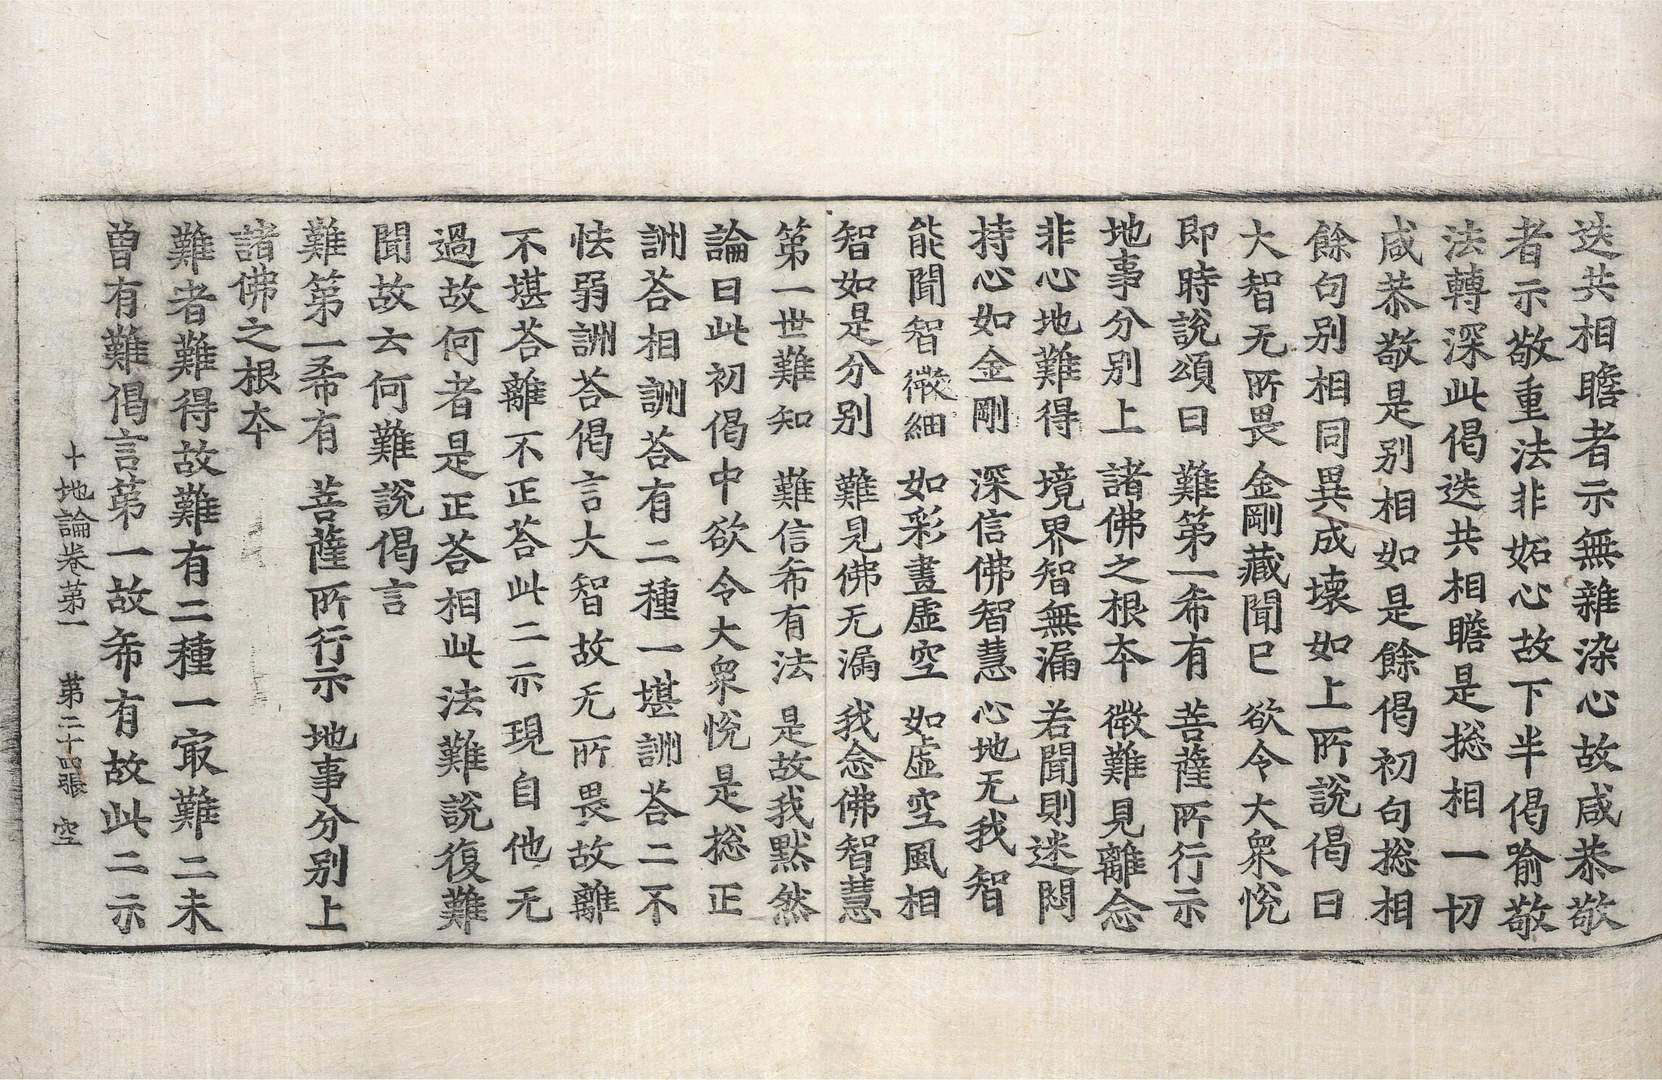 迭共相瞻者示無雜染心故咸恭敬
者示敬重法非妬心故下半偈喻敬
法轉深此偈迭共相瞻是捴相一切
咸恭敬是別相如是餘偈初句捴相
餘句別相同異成壞如上所說偈曰
大智无所畏 金剛藏聞已 欲令大衆悅
即時說頌曰 難第一希有 菩薩所行示
地事分別上 諸佛之根本 微難見離念
非心地難得 境界智無漏 若聞則迷悶
持心如金剛 深信佛智慧 心地无我智
能聞智微細 如彩畫虛空 如虛空風相
智如是分別 難見佛无漏 我念佛智慧
第一世難知 難信希有法 是故我默然
論曰此初偈中欲令大衆悅是捴正
詶荅相詶荅有二種一堪詶荅二不
怯弱詶荅偈言大智故无所畏故離
不堪荅離不正荅此二示現自他无
過故何者是正荅相此法難說復難
聞故云何難說偈言
難第一希有 菩薩所行示 地事分別上
諸佛之根本
難者難得故難有二種一㝡難二未
曾有難偈言第一故希有故此二示
十地論卷第一 第二十四張 空